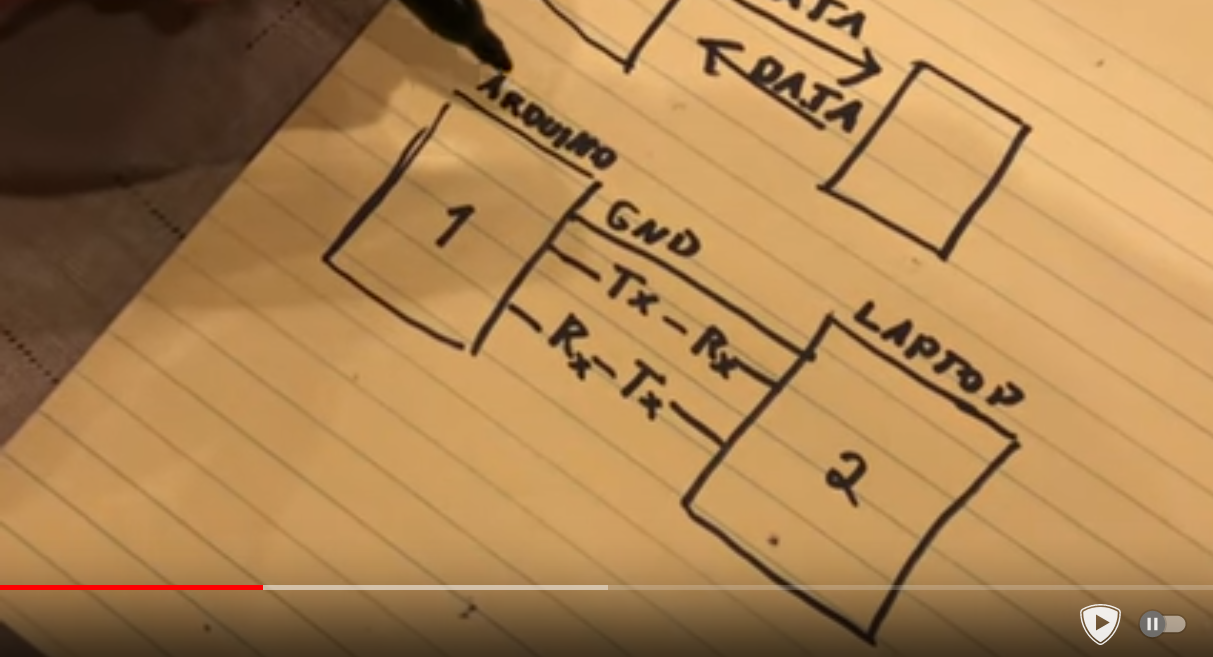 DATA
DATA
ARDUINO
1
GND
Tx - Rx
Rx - Tx
LAPTOP
2